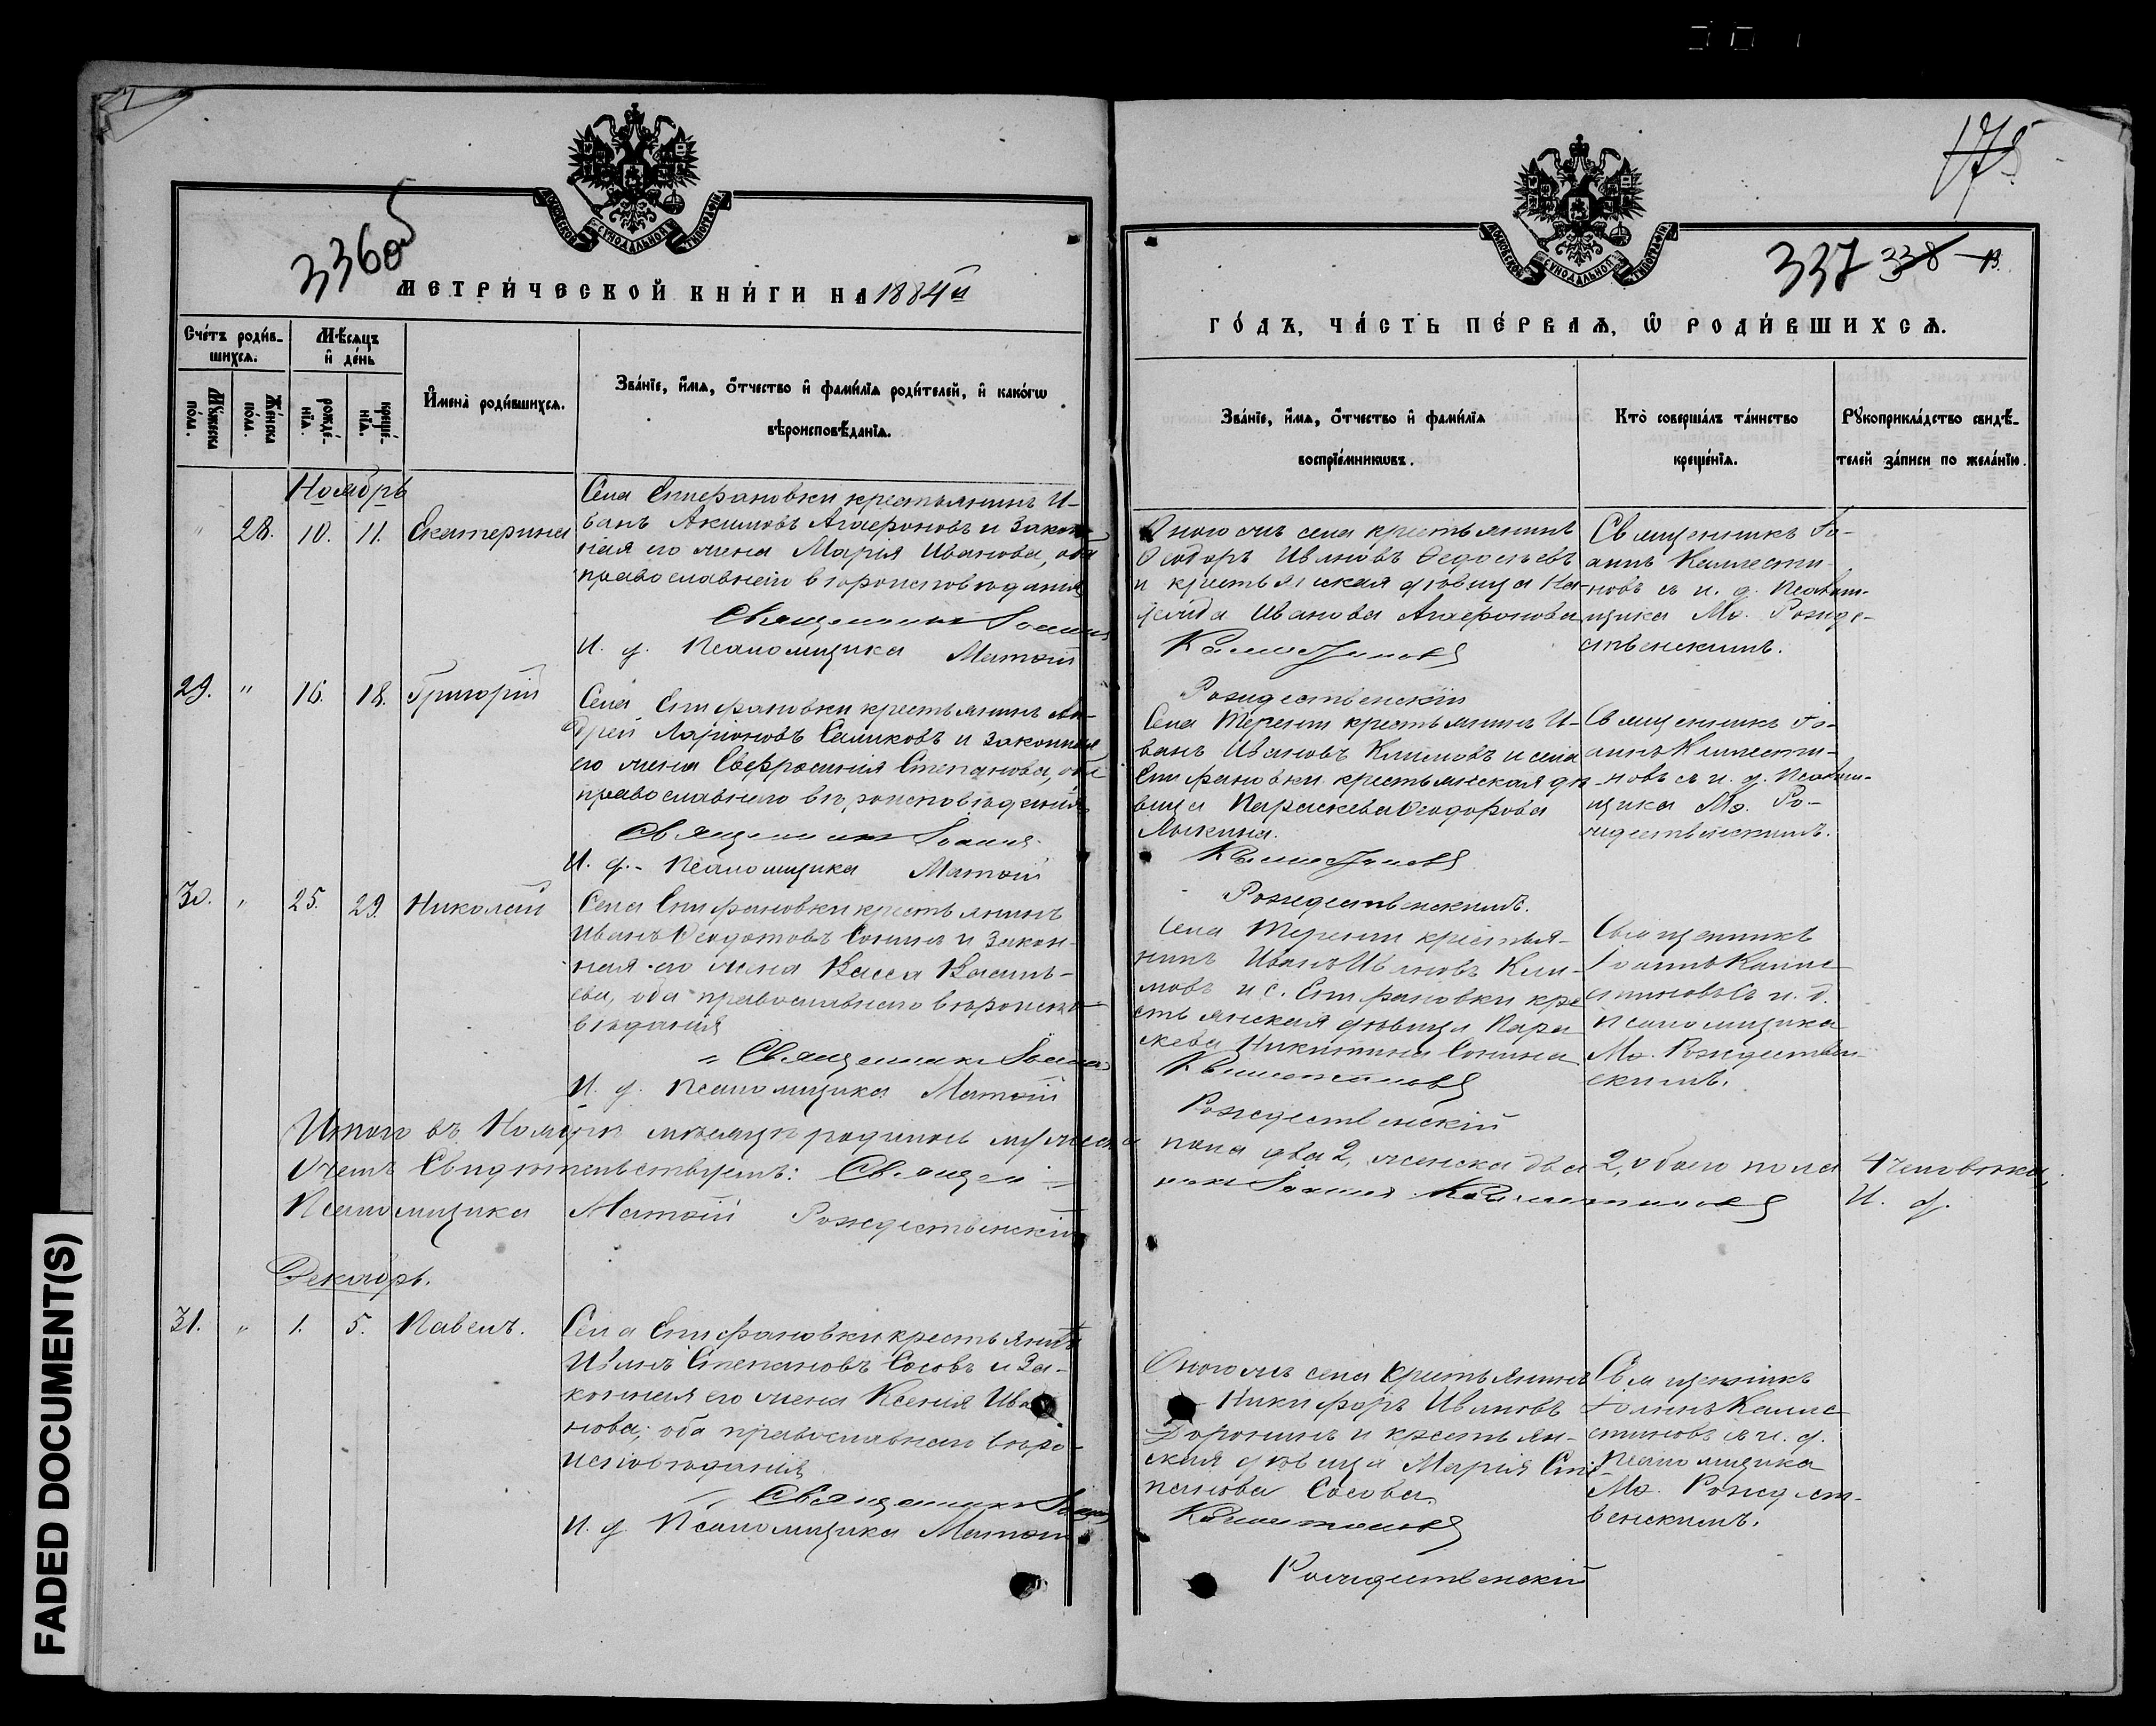 175
336об
337 338 13.
МОСКОВСКОЙ СѴНОДАЛЬНОЙ ТИПОГРАФІИ
МОСКОВСКОЙ СѴНОДАЛЬНОЙ ТИПОГРАФІИ
МЕТРИ́ЧЕСКОЙ КНИ́ГИ НА 1884й
ГО́ДЪ, ЧА́СТЬ ПЕ́РВАѦ, Ѽ РОДИ́ВШИХСѦ.
Сче́тъ роди́в-
шихсѧ.
Мѣ́сѧцъ
и҆ де́нь
Мꙋ́жеска
по́ла.
Же́нска
по́ла.
рожде́-
нїѧ.
креще́-
нїѧ.
И҆мена̀ роди́вшихсѧ.
Зва́нїе, и҆́мѧ, ѻ҆́тчество и҆ фами́лїѧ роди́телей, и҆ како́гѡ
вѣроисповѣ́данїѧ.
Зва́нїе, и҆́мѧ, ѻ҆́тчество и҆ фами́лїѧ
воспрїе́мникѡвъ.
Кто̀ соверша́лъ та́инство
креще́нїѧ.
Рꙋкоприкла́дство свидѣ́-
телей за́писи по жела́нїю.
Ноябрь
" 28. 10. 11. Екатерина
Села Епифановки крестьянинъ И-
ванъ Акимовъ Агафоновъ и закон
ная его жена Марія Иванова, оба
православнаго вѣроисповѣданія
Священникъ Іоаннъ
И. д. Псаломщика Матѳій
Оного жъ села крестьянинъ
Ѳеодоръ Ивановъ Ѳедосѣевъ
и крестьянская дѣвица На-
дежда Иванова Агафонова
Каллистиновъ
Рождественскій
Священникъ Іо-
аннъ Каллисти-
новъ съ и. д. Псалом-
щика Мѳ. Рожде-
ственскимъ.
29. " 16. 18. Григорій
Села Епифановки крестьянинъ Ан-
дрей Ларіоновъ Салиховъ и законная
его жена Евфросинія Степанова, оба
православнаго вѣроисповѣданія
Священникъ Іоаннъ
И. д. Псаломщика Матѳій
Села Терени крестьянинъ И-
ванъ Ивановъ Климовъ и села
Епифановки крестьянская дѣ-
вица Параскева Ѳеодорова
Лыкина.
Каллистиновъ
Рождественскимъ.
Священникъ Іо-
аннъ Каллисти-
новъ съ и. д. Псалом-
щика Мѳ. Ро-
ждественскимъ.
30. " 25. 29. Николай
Села Епифановки крестьянинъ
Иванъ Ѳеодотовъ Сонинъ и закон-
ная его жена Васса Василь-
ева, оба православнаго вѣроиспо-
вѣданія
Священникъ Іоаннъ
И. д. Псаломщика Матѳій
Села Терени крестья-
нинъ Иванъ Ивановъ Кли-
мовъ и с. Епифановки кре
стьянская дѣвица Пара
скева Никитина Сонина
Каллистиновъ
Рождественскій
Священникъ
Іоаннъ Калли-
стиновъ съ и. д.
Псаломщика
Мѳ. Рождествен-
скимъ.
Итого въ Ноябрѣ мѣсяцѣ родилось мужеска
пола два 2, женска два 2, обоего пола 4 человѣка,
О чемъ свидѣтельствуемъ: Священ-
никъ Іоаннъ Каллистиновъ И. д.
Псаломщика Матѳій Рождественскій
Декабрь.
31. " 1. 5. Павелъ.
Села Епифановки крестьянинъ
Иванъ Степановъ Сосовъ и за-
конная его жена Ксенія Ива
нова, оба православнаго вѣро-
исповѣданія
Священникъ Іоаннъ
И. д. Псаломщика Матѳій
Оного жъ села крестьянинъ
Никифоръ Ивановъ
Доронинъ и крестьян-
ская дѣвица Марія Сте-
панова Сосова.
Каллистиновъ
Рождественскій
Священникъ
Іоаннъ Калли-
стиновъ съ и. д.
Псаломщика
Мѳ. Рождест-
венскимъ.
FADED DOCUMENT(S)